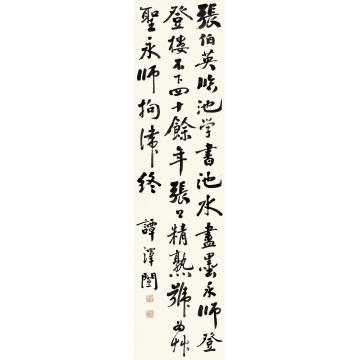 張伯英臨池学書池水盡墨永師登
登樓不下四十餘年張公精熟號為草
聖永師拘滯終
譚澤闓